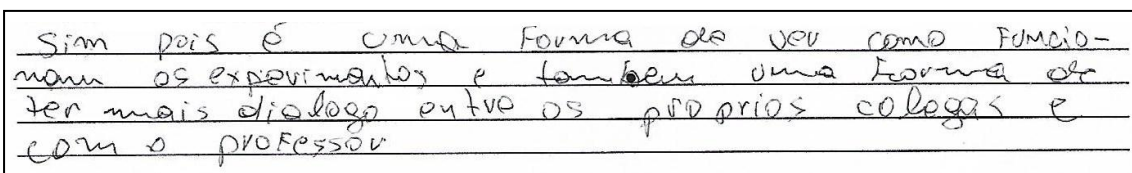 Sim pois é uma Forma de ver como Funcio-
nam os experimentos e tambem uma Forma de
ter mais dialogo entre os proprios colegas e
com o professor